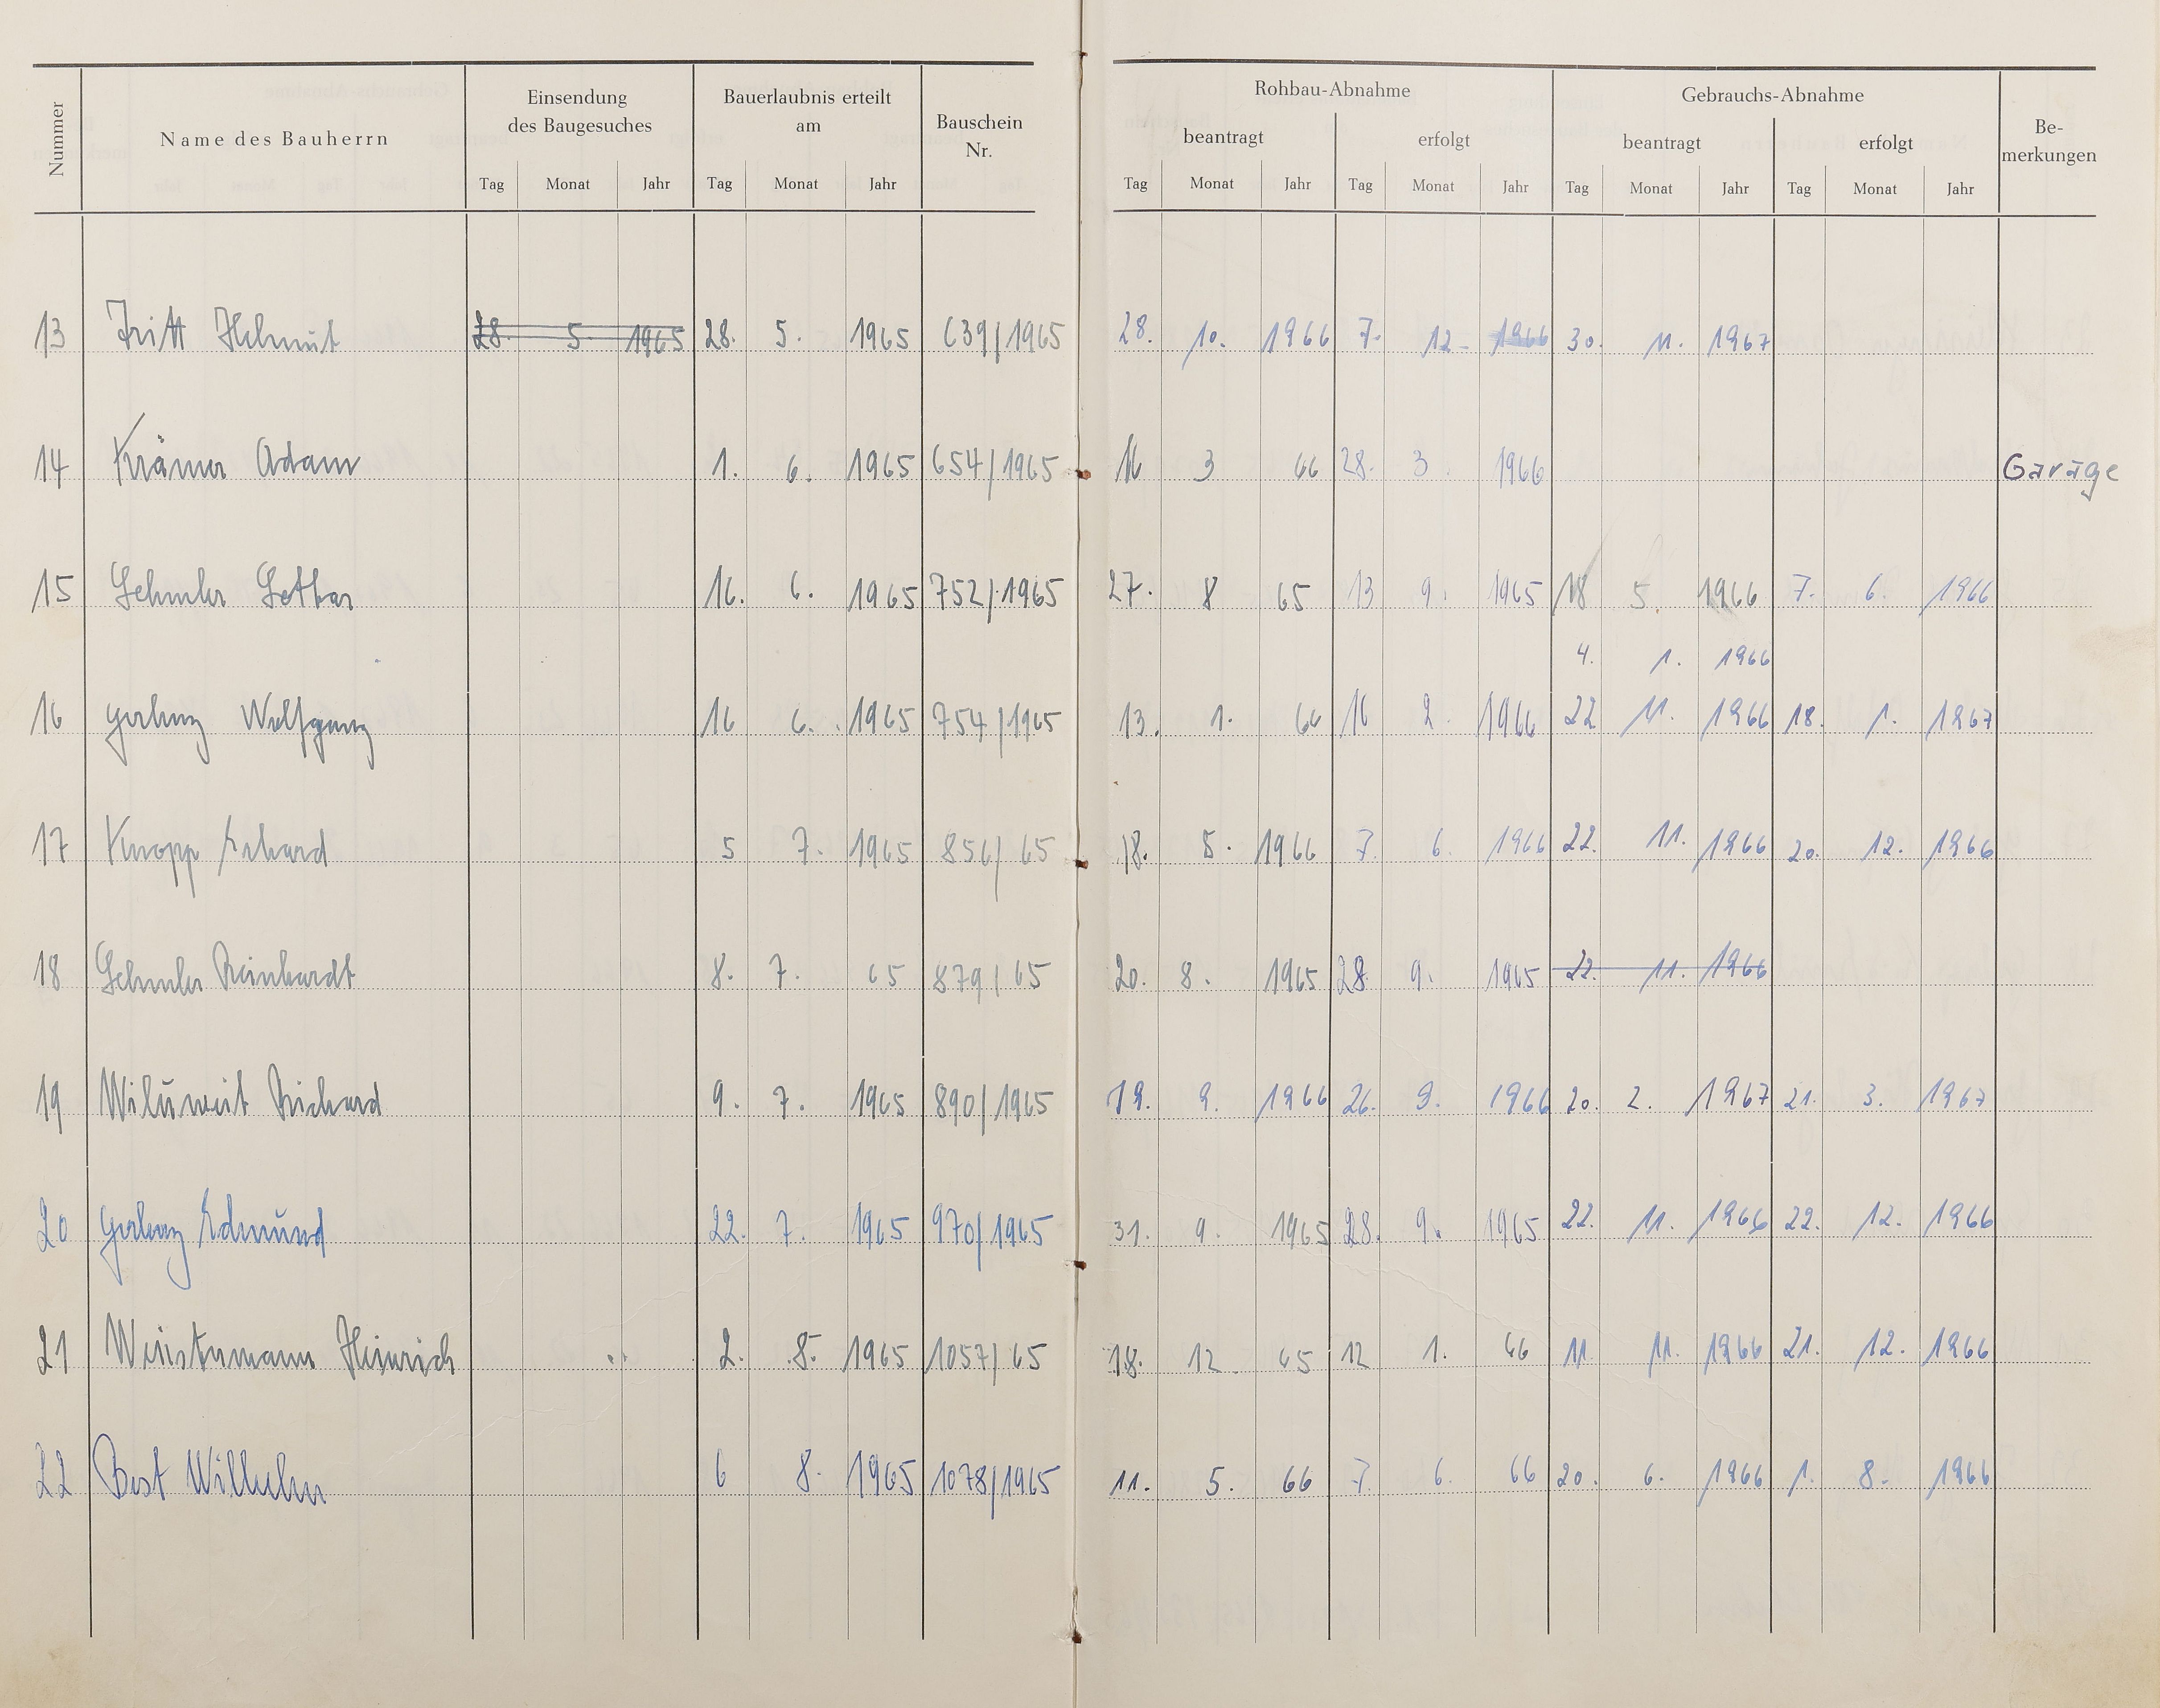 Nummer
Name des Bauherrn
Einsendung
des Baugesuches
Bauerlaubnis erteilt
am
Bauschein
Nr.
Rohbau-Abnahme
Gebrauchs-Abnahme
Be-
merkungen
beantragt erfolgt beantragt erfolgt
Tag Monat Jahr Tag Monat Jahr Tag Monat Jahr Tag Monat Jahr Tag Monat Jahr Tag Monat Jahr
13 Tritt Helmut 28. 5. 1965 28. 5. 1965 639/1965 28. 10. 1966 7. 12. 1966 30. 11. 1967
14 Krämer Adam 1. 6. 1965 654/1965 16 3 66 28. 3. 1966 Garage
15 Lothar 16. 6. 1965 752/1965 27. 8 65 13 9. 1965 18 5. 1966 7. 6. 1966
4. 1. 1966
16 Wolfgang 16 6. 1965 754/1965 13. 1. 66 16 2. 1966 22 11. 1966 18. 1. 1967
17 Knopp Erhard 5 7. 1965 856/65 18. 5. 1966 7. 6. 1966 22. 11. 1966 20. 12. 1966
18 Reinhardt 8. 7. 65 879/65 20. 8. 1965 28. 9. 1965 22. 11. 1966
19 Richard 9. 7. 1965 890/1965 19. 9. 1966 26. 9. 1966 20. 2. 1967 21. 3. 1967
20 Edmund 22. 7. 1965 970/1965 31. 9. 1965 28. 9. 1965 22. 11. 1966 22. 12. 1966
21 Heinrich 2. 8. 1965 1057/65 18. 12. 65 12 1. 66 11. 11. 1966 21. 12. 1966
22 Best Wilhelm 6 8. 1965 1078/1965 11. 5. 66 7. 6. 66 20. 6. 1966 1. 8. 1966